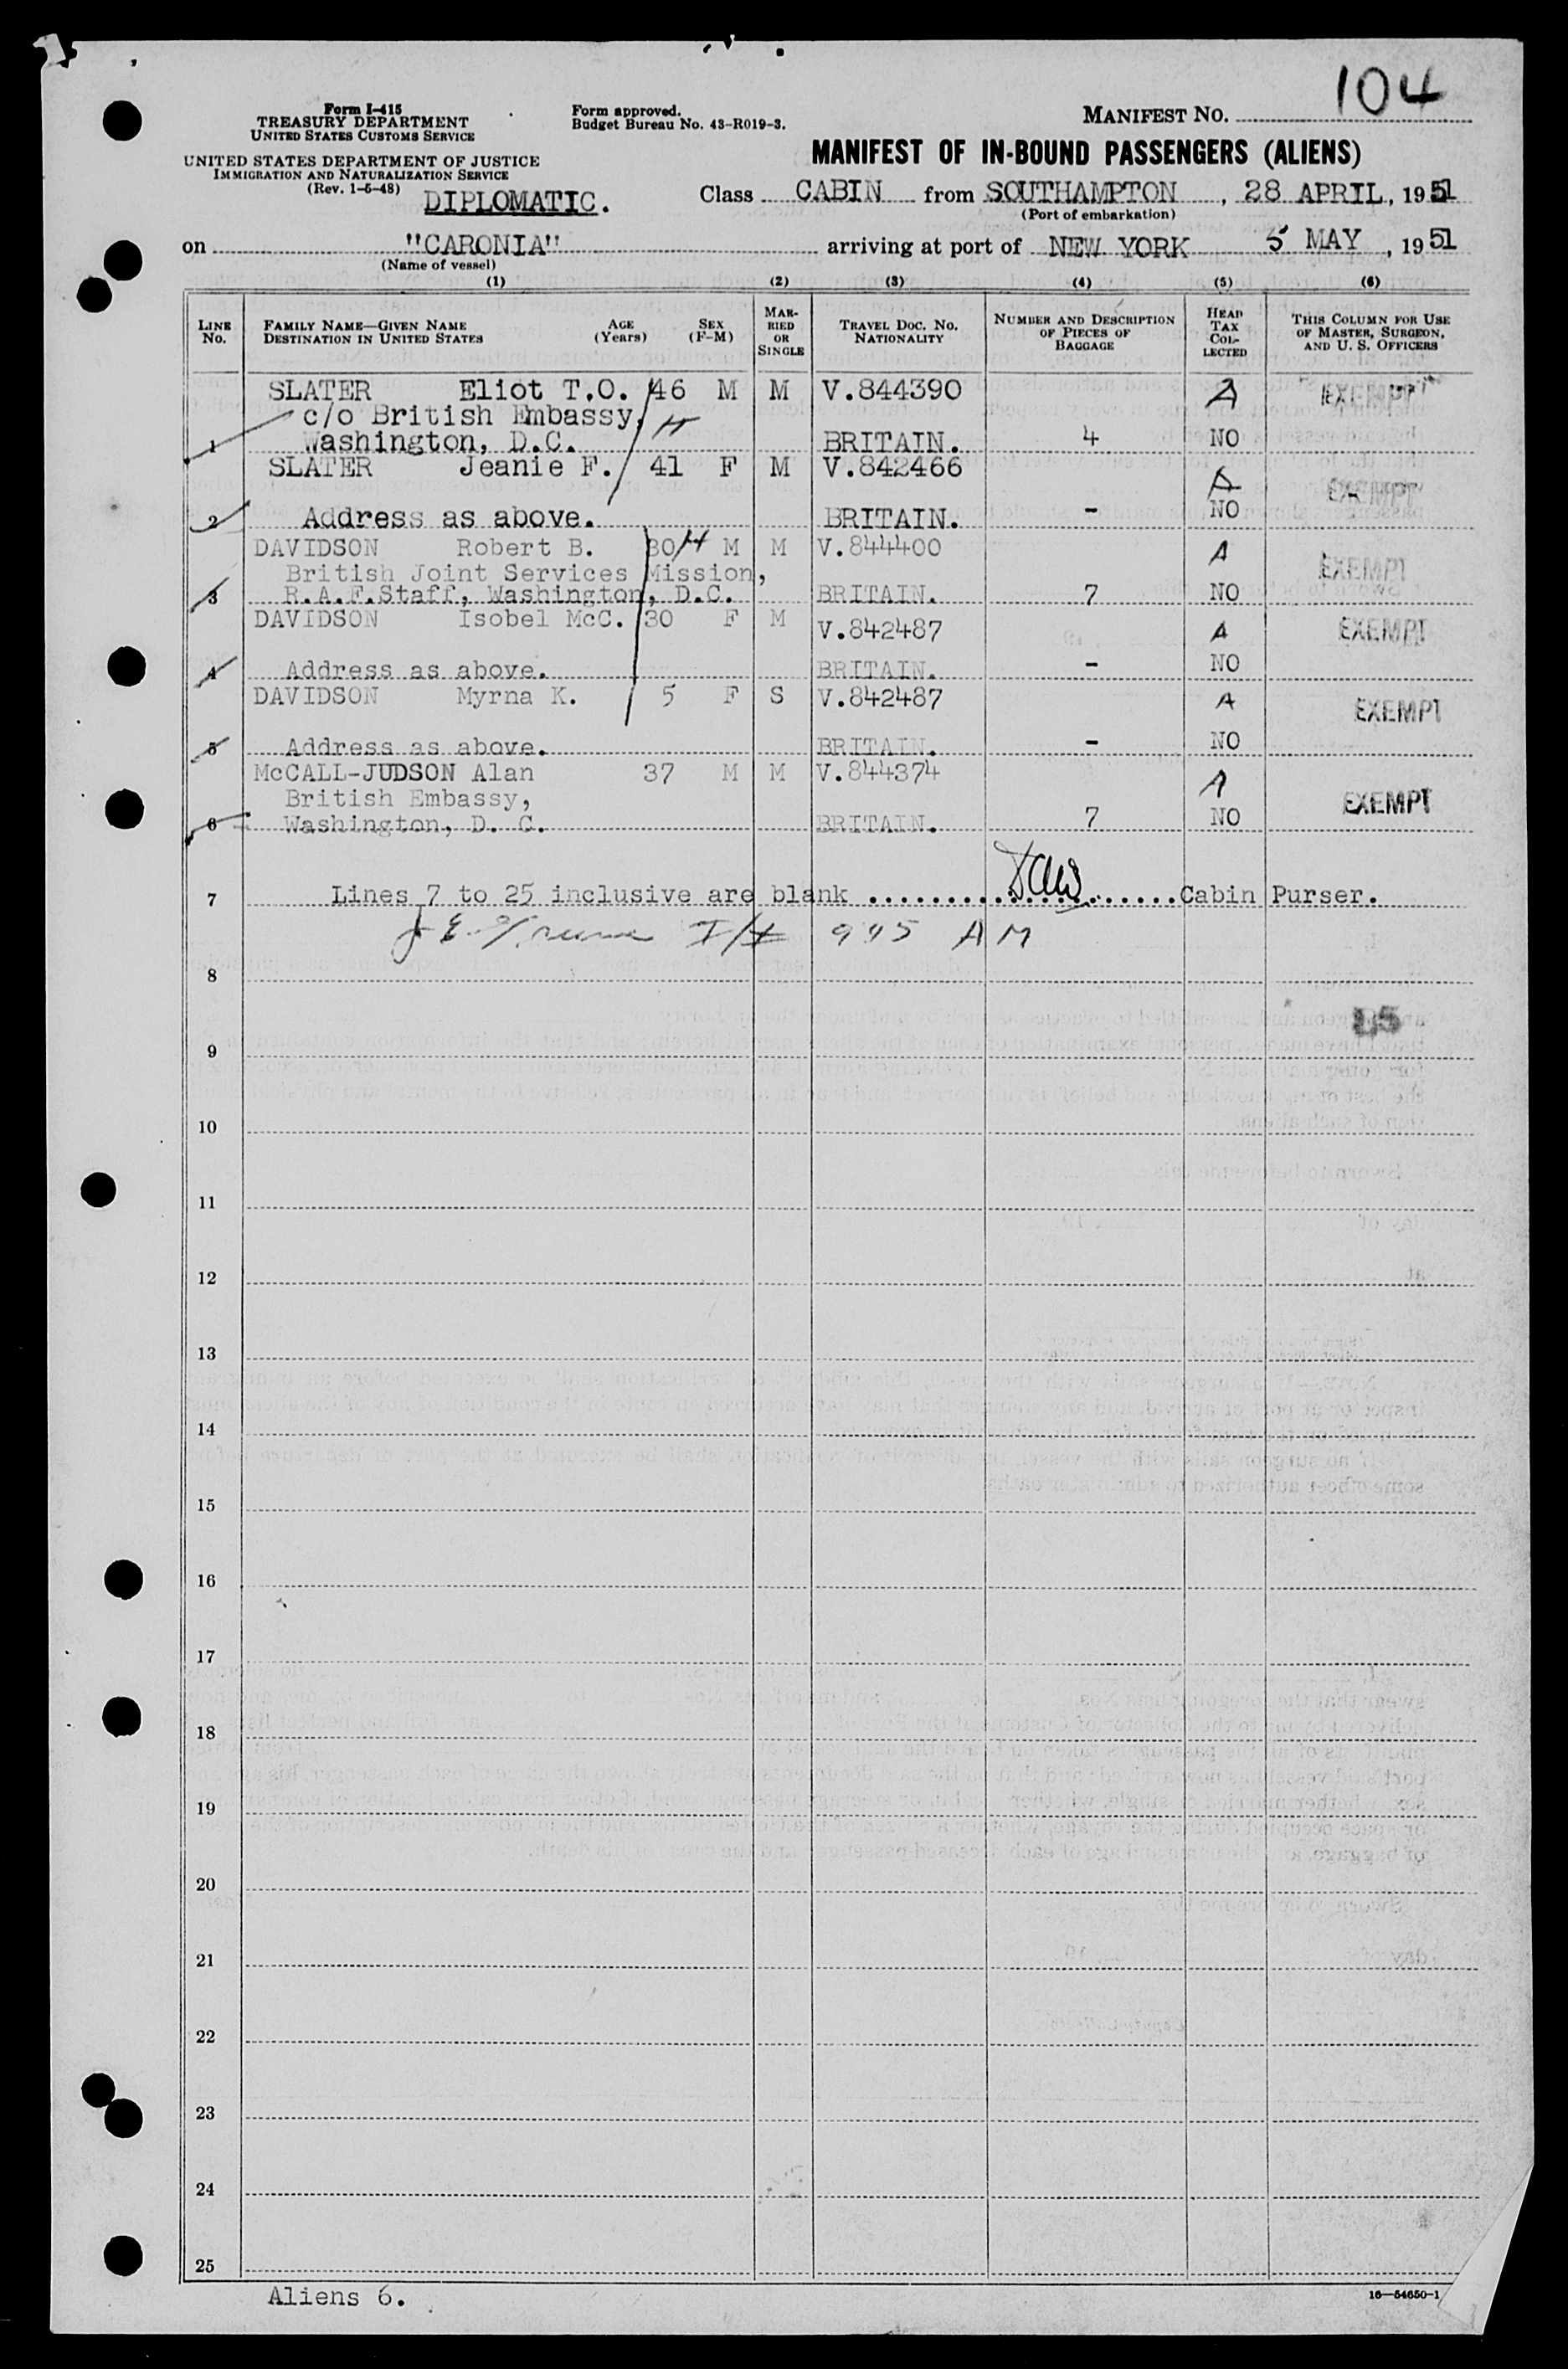 104
Form I-415
TREASURY DEPARTMENT
UNITED STATES CUSTOMS SERVICE
Form approved.
Budget Bureau No. 43-R019-3.
MANIFEST NO.
UNITED STATES DEPARTMENT OF JUSTICE
IMMIGRATION AND NATURALIZATION SERVICE
(Rev. 1-5-48)
DIPLOMATIC.
MANIFEST OF IN-BOUND PASSENGERS (ALIENS)
Class CABIN from SOUTHAMPTON, 28 APRIL, 1951
(Port of embarkation)
on "CARONIA" arriving at port of NEW YORK 5 MAY, 1951
(Name of vessel)
(1) (2) (3) (4) (5) (6)
LINE No. FAMILY NAME—GIVEN NAME DESTINATION IN UNITED STATES AGE (Years) SEX (F-M) MARRIED OR SINGLE TRAVEL DOC. NO. NATIONALITY NUMBER AND DESCRIPTION OF PIECES OF BAGGAGE HEAD TAX COLLECTED THIS COLUMN FOR USE OF MASTER, SURGEON, AND U. S. OFFICERS
SLATER Eliot T.O. 46 M M V.844390 A EXEMPT
c/o British Embassy, H
1 Washington, D.C. BRITAIN. 4 NO
SLATER Jeanie F. 41 F M V.842466 A EXEMPT
2 Address as above. BRITAIN. - NO
DAVIDSON Robert B. 30 H M M V.844400 A EXEMPT
British Joint Services Mission,
3 R.A.F.Staff, Washington, D.C. BRITAIN. 7 NO
DAVIDSON Isobel McC. 30 F M V.842487 A EXEMPT
4 Address as above. BRITAIN. - NO
DAVIDSON Myrna K. 5 F S V.842487 A EXEMPT
5 Address as above. BRITAIN. - NO
McCALL-JUDSON Alan 37 M M V.844374 A EXEMPT
British Embassy,
6 Washington, D. C. BRITAIN. 7 NO
7 Lines 7 to 25 inclusive are blank ......................Cabin Purser.
945 AM
8
9
10
11
12
13
14
15
16
17
18
19
20
21
22
23
24
25
Aliens 6.
16—54650-1